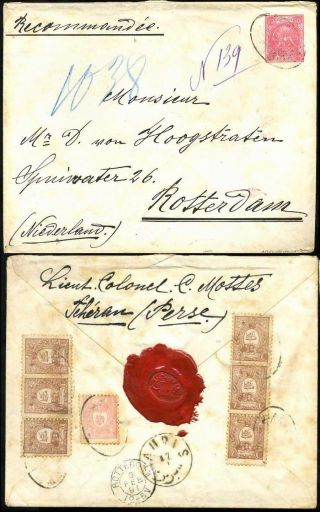 Recommandée.
N 139
1038
Monsieur
Mr. D. von Hoogstraten
Spuiwater 26.
Rotterdam
(Niederland.)
Lieut. Colonel C. Mottes
Téhéran (Perse.)
ROTTERDAM